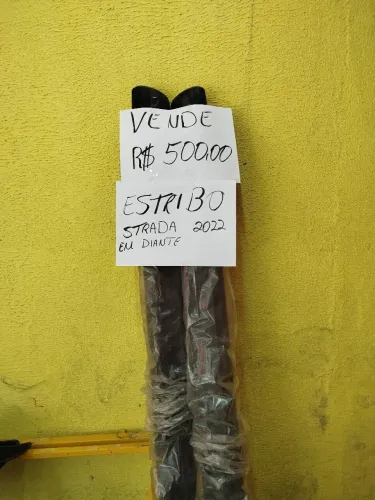 VENDE
R$ 500,00
ESTRIBO
STRADA 2022
EM DIANTE